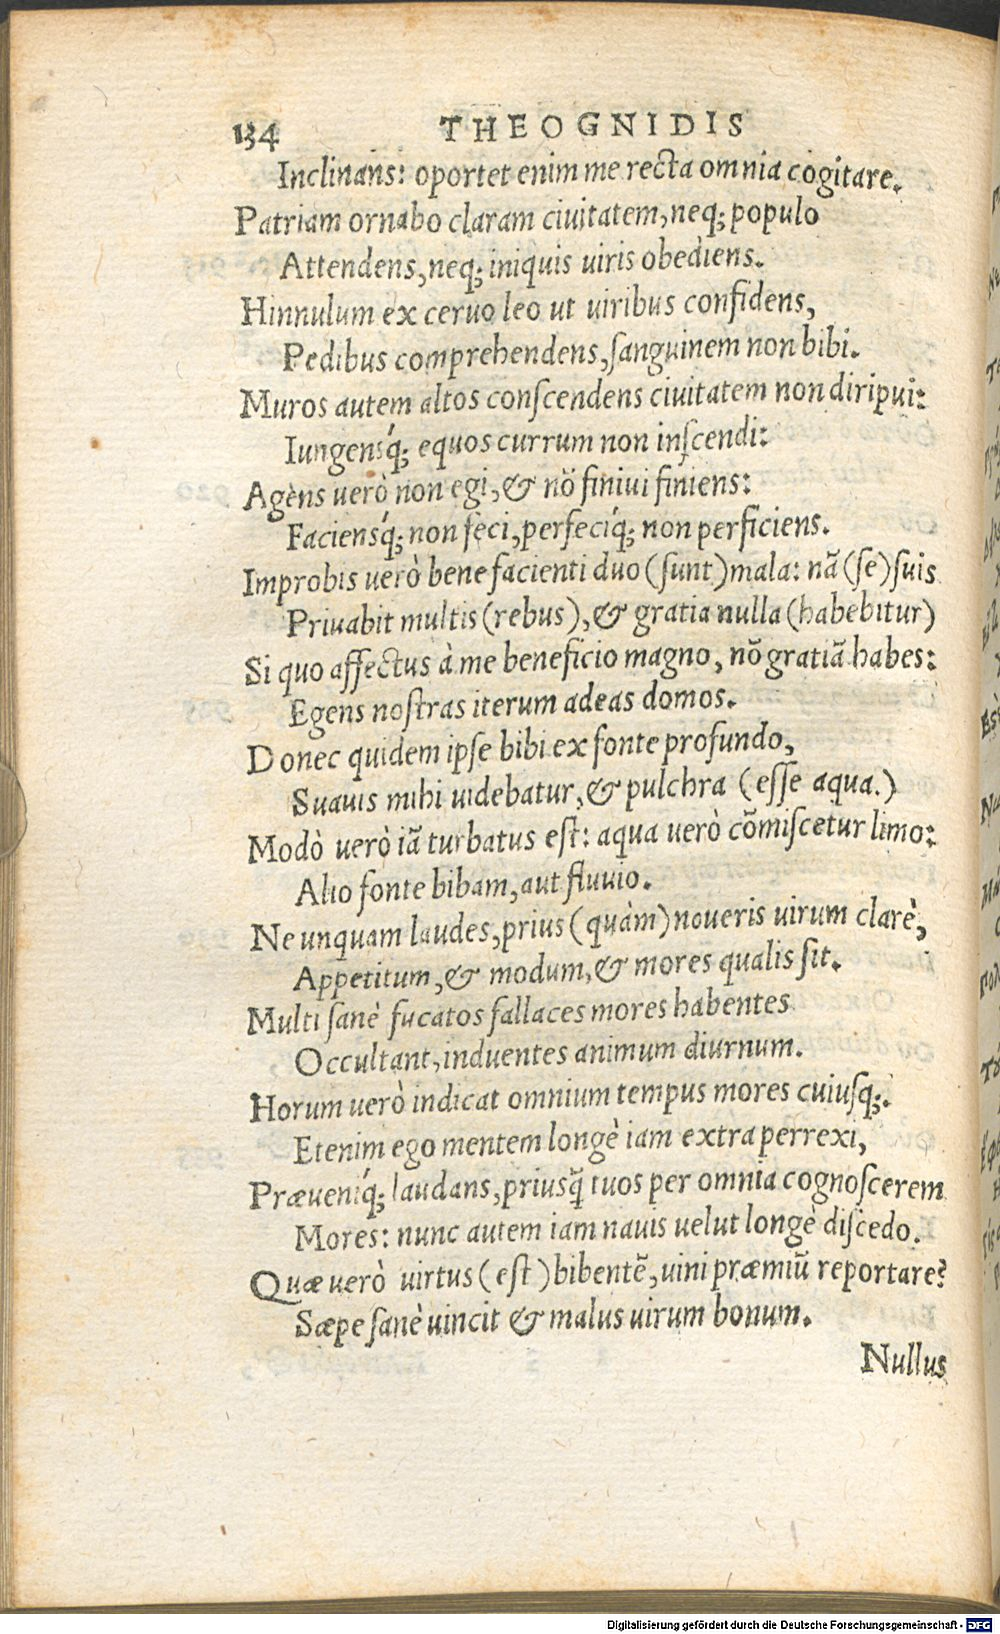 134 THEOGNIDIS
Inclinans: oportet enim me recta omnia cogitare.
Patriam ornabo claram ciuitatem, neq; populo
Attendens, neq; iniquis uiris obediens.
Hinnulum ex ceruo leo ut uiribus confidens,
Pedibus comprehendens, ſanguinem non bibi.
Muros autem altos conſcendens ciuitatem non diripui:
Iungensq́; equos currum non inſcendi:
Agèns uerò non egi, & nõ finiui finiens:
Faciensq́; non feci, perfeciq́; non perficiens.
Improbis uerò bene facienti duo (ſunt) mala: nã (ſe) ſuis
Priuabit multis (rebus), & gratia nulla (habebitur)
Si quo affectus à me beneficio magno, nõ gratiã habes:
Egens noſtras iterum adeas domos.
Donec quidem ipſe bibi ex fonte profundo,
Suauis mihi uidebatur, & pulchra (eſſe aqua.)
Modò uerò iã turbatus eſt: aqua uerò cõmiſcetur limo:
Alio fonte bibam, aut fluuio.
Ne unquam laudes, prius (quàm) noueris uirum clarè,
Appetitum, & modum, & mores qualis ſit.
Multi ſanè fucatos fallaces mores habentes
Occultant, induentes animum diurnum.
Horum uerò indicat omnium tempus mores cuiuſq;.
Etenim ego mentem longè iam extra perrexi,
Præueniq́; laudans, priuſq̃ tuos per omnia cognoſcerem
Mores: nunc autem iam nauis uelut longè diſcedo.
Quæ uerò uirtus (eſt) bibentẽ, uini præmiũ reportare?
Sæpe ſanè uincit & malus uirum bonum.
Nullus
Digitalisierung gefördert durch die Deutsche Forschungsgemeinschaft - DFG